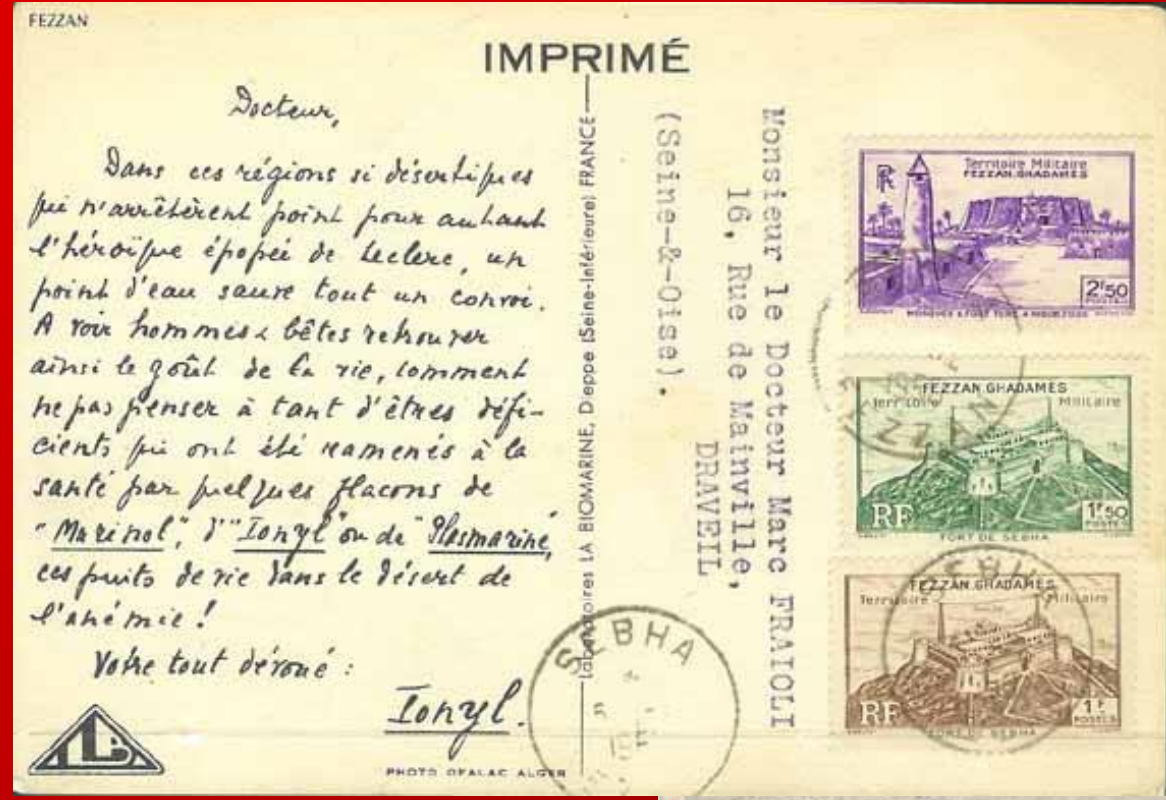 FEZZAN
IMPRIMÉ
Docteur,
Dans ces régions si désertiques
qui n'arrêtèrent point pour autant
l'héroïque épopée de Leclerc, un
point d'eau sauve tout un convoi.
A voir hommes & bêtes retrouver
ainsi le goût de la vie, comment
ne pas penser à tant d'êtres défi-
cients qui ont été ramenés à la
santé par quelques flacons de
"Marinol", d'"Ionyl" ou de "Plasmarine,
ces puits de vie dans le désert de
l'anémie!
Votre tout dévoué :
Ionyl.
PHOTO OFALAC ALGER
Laboratoires LA BIOMARINE, Deppe (Seine-Inférieure) FRANCE
Monsieur le Docteur Marc FRAIOLI
16, Rue de Mainville,
DRAVEIL
(Seine-&-Oise).
SEBHA
RF
Territoire Militaire
FEZZAN.GHADAMES
2F50
POSTES
MOSQUÉE & FORT TURC A MOURZOUK
FEZZAN.GHADAMES
Territoire Militaire
RF
1F50
POSTES
FORT DE SEBHA
FEZZAN
FEZZAN.GHADAMES
Territoire Militaire
RF
1F
POSTES
FORT DE SEBHA
SEBHA